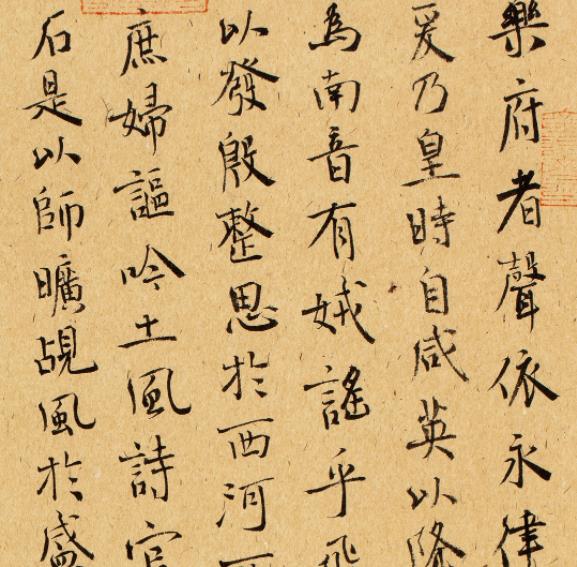 樂府者聲依永律
爰乃皇時自咸英以降
為南音有娀謠乎飛
以發殷整思於西河
庶婦謳吟土風詩官
石是以師曠覘風於盛